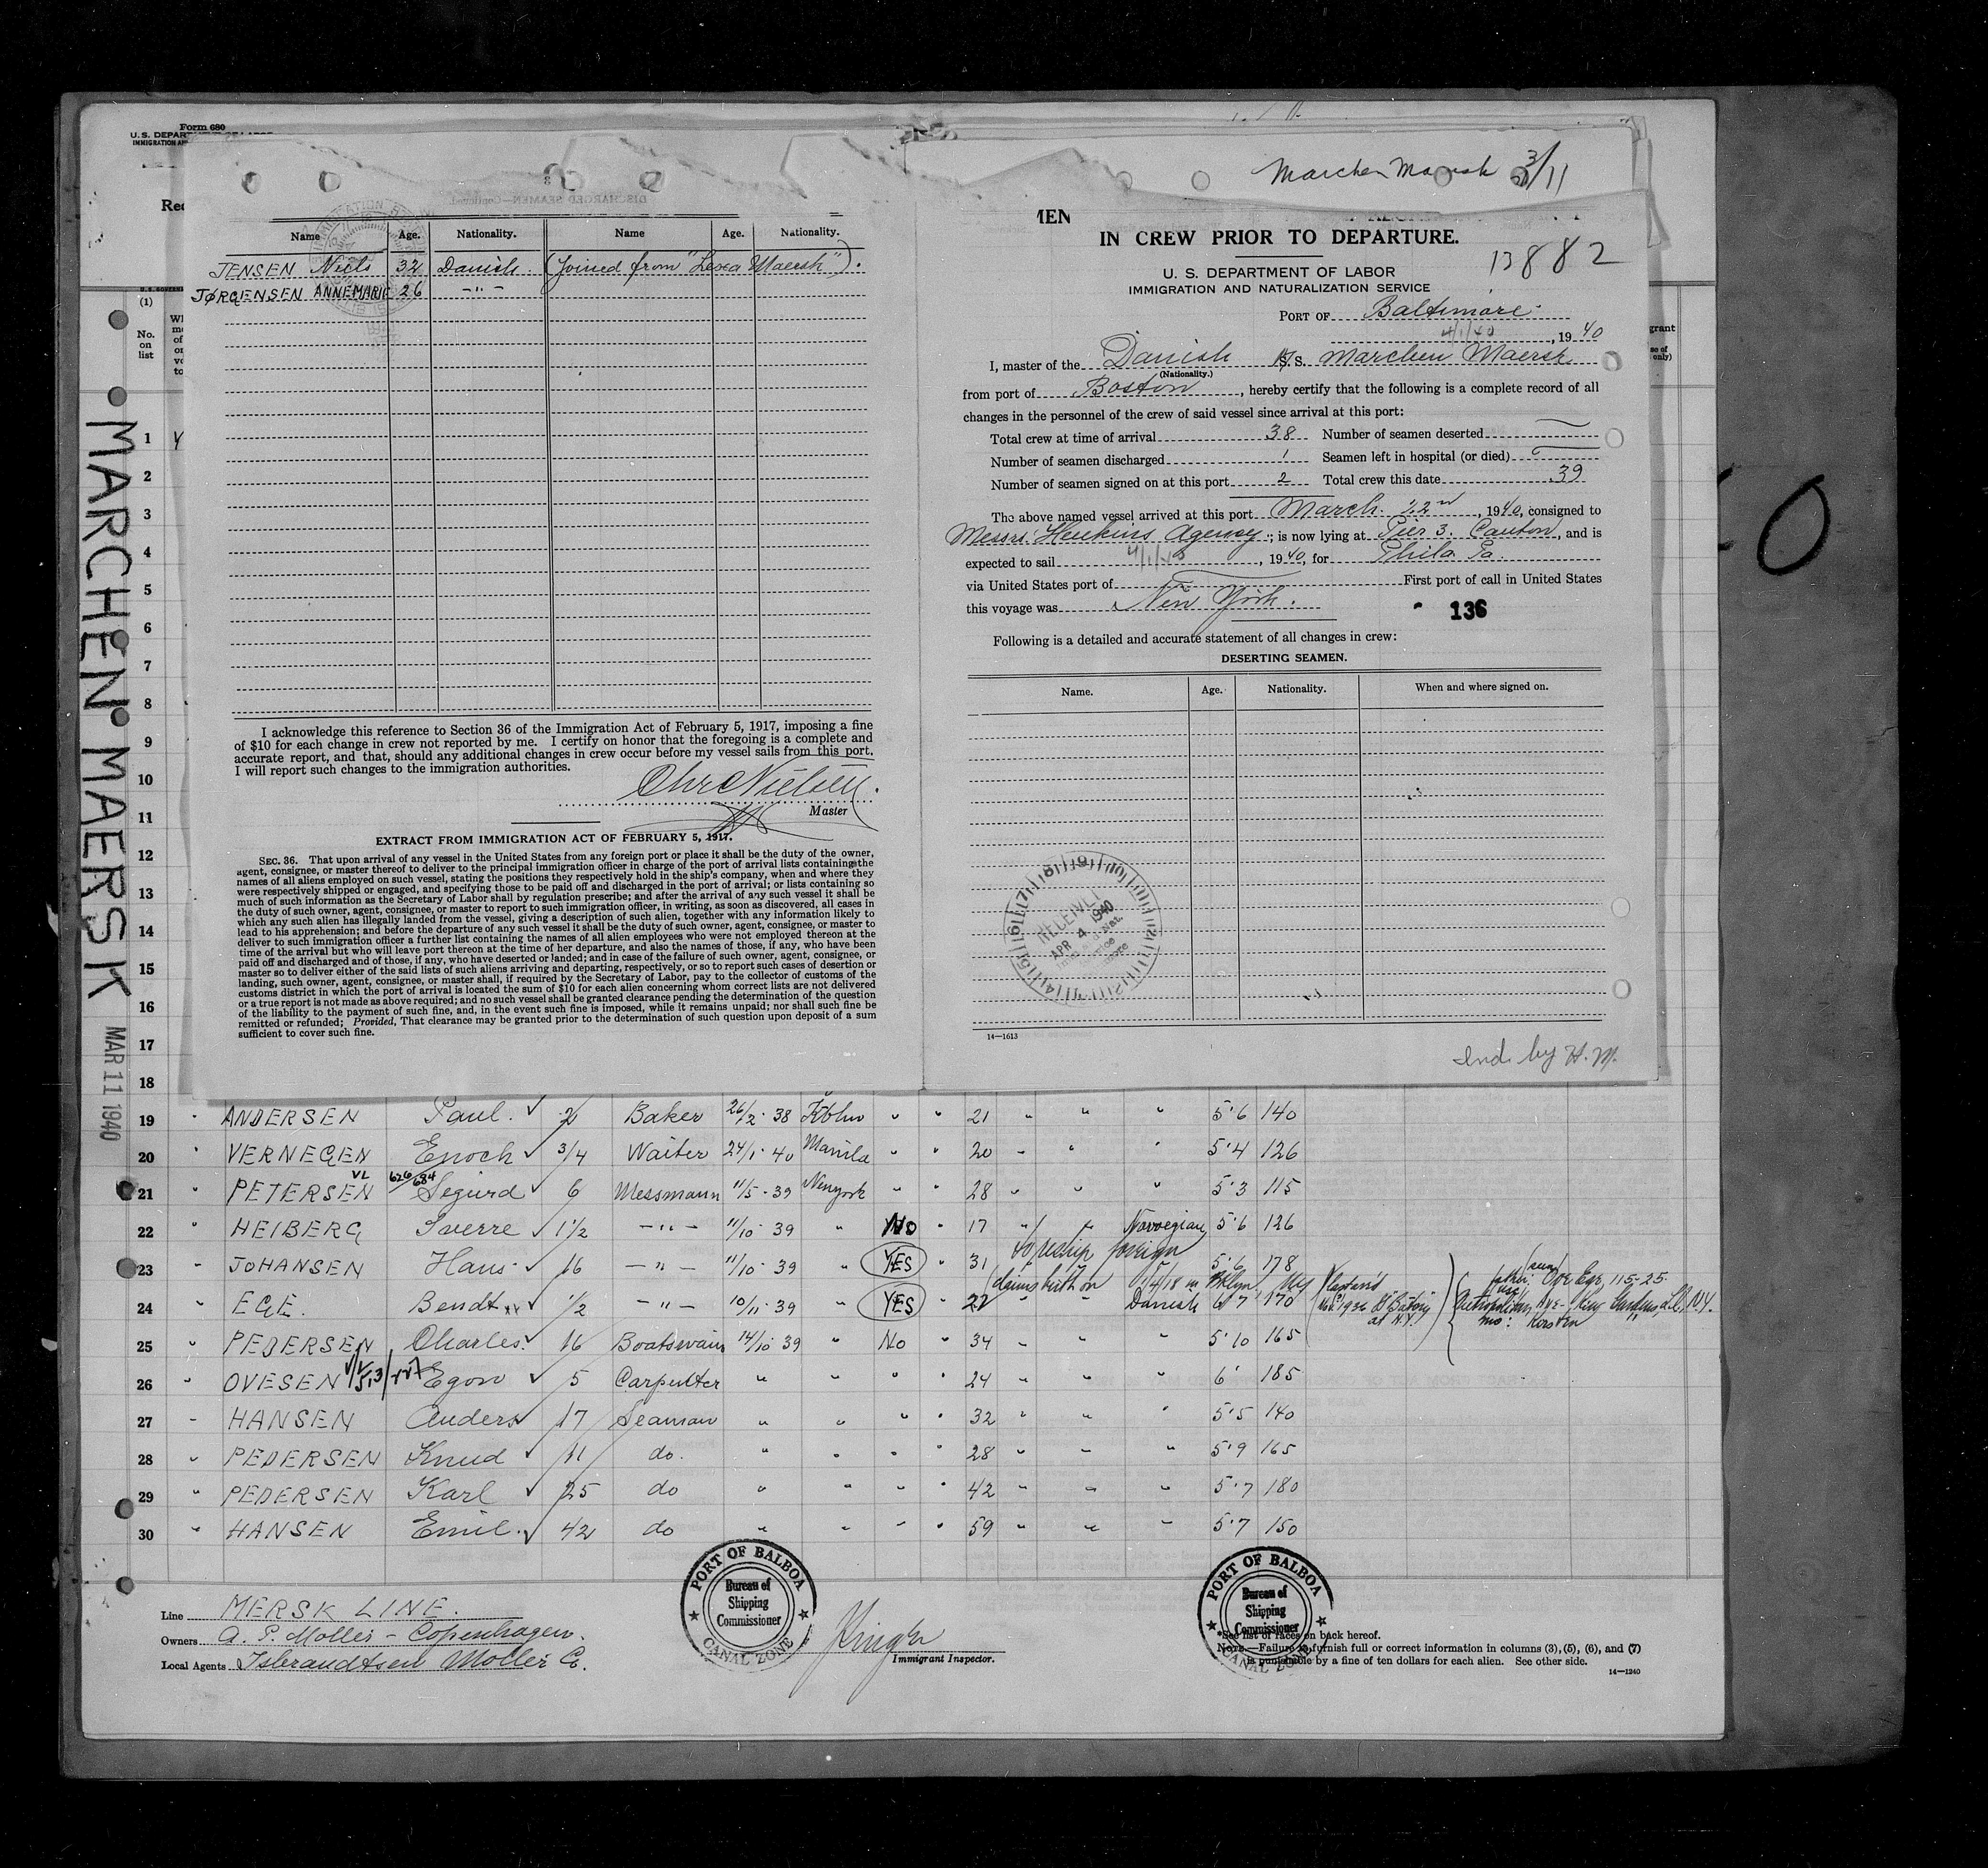 Form 680
U. S. DEPAR
IMMIGRATION AN
Rec
(1)
No.
on
list
MARCHEN MAERSK
MAR 11 1940
DISCHARGED SEAMEN—Continued
Name Age. Nationality. Name Age. Nationality.
JENSEN Niels 32 Danish. (Joined from "Lexa Maersk").
JØRGENSEN ANNEMARIE 26 -"-
I acknowledge this reference to Section 36 of the Immigration Act of February 5, 1917, imposing a fine
of $10 for each change in crew not reported by me. I certify on honor that the foregoing is a complete and
accurate report, and that, should any additional changes in crew occur before my vessel sails from this port,
I will report such changes to the immigration authorities.
Chr Nielsen.
Master
EXTRACT FROM IMMIGRATION ACT OF FEBRUARY 5, 1917.
SEC. 36. That upon arrival of any vessel in the United States from any foreign port or place it shall be the duty of the owner,
agent, consignee, or master thereof to deliver to the principal immigration officer in charge of the port of arrival lists containing the
names of all aliens employed on such vessel, stating the positions they respectively hold in the ship's company, when and where they
were respectively shipped or engaged, and specifying those to be paid off and discharged in the port of arrival; or lists containing so
much of such information as the Secretary of Labor shall by regulation prescribe; and after the arrival of any such vessel it shall be
the duty of such owner, agent, consignee, or master to report to such immigration officer, in writing, as soon as discovered, all cases in
which any such alien has illegally landed from the vessel, giving a description of such alien, together with any information likely to
lead to his apprehension; and before the departure of any such vessel it shall be the duty of such owner, agent, consignee, or master to
deliver to such immigration officer a further list containing the names of all alien employees who were not employed thereon at the
time of the arrival but who will leave port thereon at the time of her departure, and also the names of those, if any, who have been
paid off and discharged and of those, if any, who have deserted or landed; and in case of the failure of such owner, agent, consignee, or
master so to deliver either of the said lists of such aliens arriving and departing, respectively, or so to report such cases of desertion or
landing, such owner, agent, consignee, or master shall, if required by the Secretary of Labor, pay to the collector of customs of the
customs district in which the port of arrival is located the sum of $10 for each alien concerning whom correct lists are not delivered
or a true report is not made as above required; and no such vessel shall be granted clearance pending the determination of the question
of the liability to the payment of such fine, and, in the event such fine is imposed, while it remains unpaid; nor shall such fine be
remitted or refunded; Provided, That clearance may be granted prior to the determination of such question upon deposit of a sum
sufficient to cover such fine.
Marchen Maersk 3/11
MEN
IN CREW PRIOR TO DEPARTURE.
13882
U. S. DEPARTMENT OF LABOR
IMMIGRATION AND NATURALIZATION SERVICE
PORT OF Baltimore
4/1/40, 1940
I, master of the Danish M/S. Marchen Maersk
(Nationality.)
from port of Boston, hereby certify that the following is a complete record of all
changes in the personnel of the crew of said vessel since arrival at this port:
Total crew at time of arrival 38 Number of seamen deserted —
Number of seamen discharged 1 Seamen left in hospital (or died)
Number of seamen signed on at this port 2 Total crew this date 39
The above named vessel arrived at this port March 22nd, 1940, consigned to
Messrs. Henkins Agency; is now lying at Pier 3. Canton, and is
expected to sail 4/1/40, 1940, for Phila Pa.
via United States port of — First port of call in United States
this voyage was New York.
136
Following is a detailed and accurate statement of all changes in crew:
DESERTING SEAMEN.
Name. Age. Nationality. When and where signed on.
RECEIVED
APR 4 1940
14—1613
Ind. by H. M.
1
2
3
4
5
6
7
8
9
10
11
12
13
14
15
16
17
18
19 " ANDERSEN Paul. 2 Baker 26/2-38 Kbhvn " " 21 " " " 5'6 140
20 " VERNEGEN Enoch 3/4 Waiter 24/1-40 Manila " " 20 " " " 5'4 126
21 " PETERSEN VL 626/684 Segurd 6 Messmann 11/5-39 Newyork " " 28 " " " 5'3 115
22 " HEIBERG Sverre 1 1/2 -"- 11/10-39 " No " 17 " " Norvegian 5'6 126
23 " JOHANSEN Hans 16 -"- 11/10-39 " YES " 31 to reship foreign 5'6 178
24 " EGE. Bendt 1/2 -"- 10/11-39 " YES " 22 claims birth on Danish 6'7 170
25 " PEDERSEN Charles. 16 Boatswain 14/10 39 " No " 34 " " " 5'10 165
26 " OVESEN Egon 5 Carpenter " " " " 24 " " " 6' 185
27 " HANSEN Anders 17 Seaman " " " " 32 " " " 5'5 140
28 " PEDERSEN Knud 11 do. " " " " 28 " " " 5'9 165
29 " PEDERSEN Karl 25 do " " " " 42 " " " 5'7 180
30 " HANSEN Emil. 42 do " " " " 59 " " " 5'7 150
Line MERSK LINE.
Owners A. P. Moller - Copenhagen.
Local Agents Isbrandtsen Moller Co.
PORT OF BALBOA
Bureau of
Shipping
Commissioner
CANAL ZONE
Immigrant Inspector.
PORT OF BALBOA
Bureau of
Shipping
Commissioner
CANAL ZONE
*See list of races on back hereof.
NOTE.—Failure to furnish full or correct information in columns (3), (5), (6), and (7)
is punishable by a fine of ten dollars for each alien. See other side.
14—1240